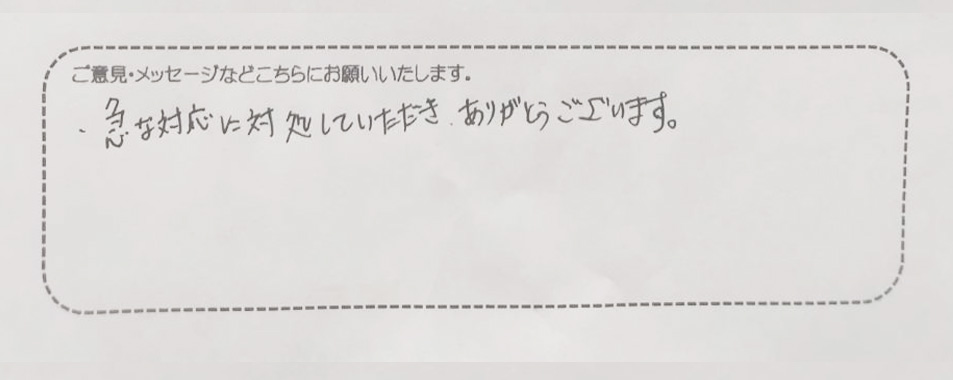 ご意見・メッセージなどこちらにお願いいたします。
・急な対応に対処していただき、ありがとうございます。